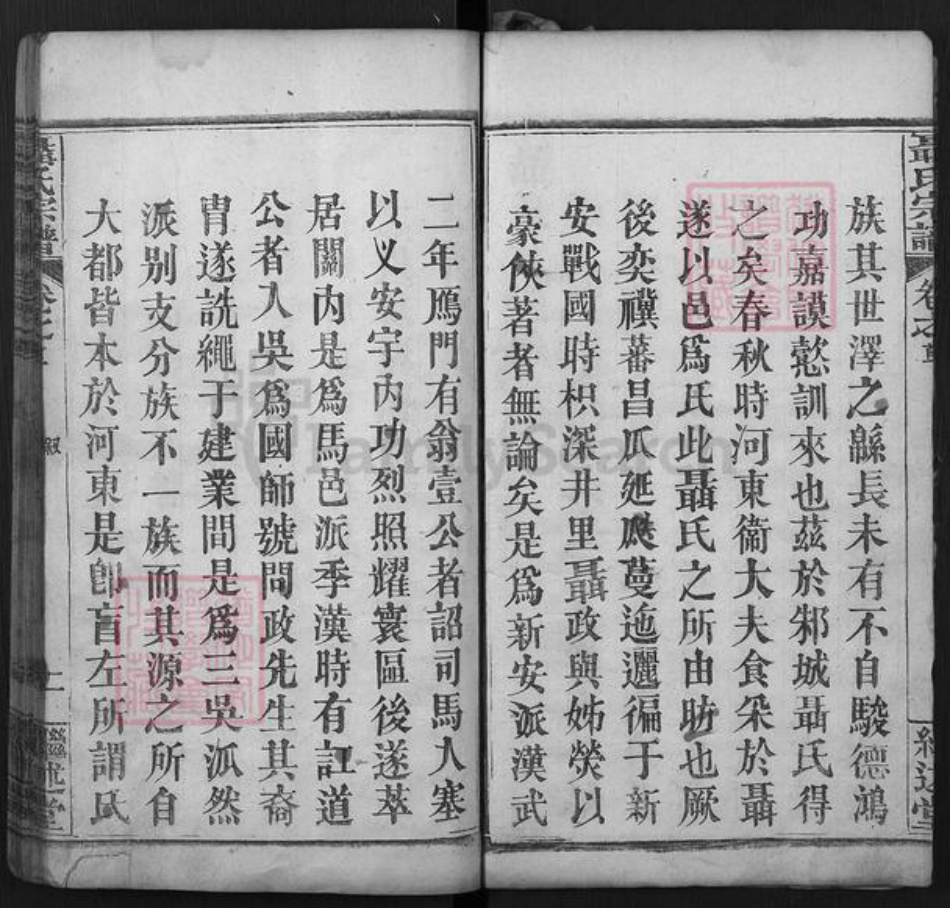 聶氏宗譜
卷之首
族其世澤之緜長未有不自駿德鴻
功嘉謨懿訓來也茲於邾城聶氏得
之矣春秋時河東衞大夫食采於聶
遂以邑爲氏此聶氏之所由昉也厥
後奕禩蕃昌瓜瓞蔓迆邐徧于新
安戰國時枳深井里聶政與姊熒以
豪俠著者無論矣是爲新安派漢武
二年鴈門有翁壹公者詔司馬入塞
以乂安宇內功烈照耀寰區後遂萃
居關內是爲馬邑派季漢時有註道
公者入吳爲國師號問政先生其裔
胄遂詵繩于建業間是爲三吳派然
派别支分族不一族而其源之所自
大都皆本於河東是卽盲左所謂氏
聶氏宗譜
卷之首
敘
繼述堂